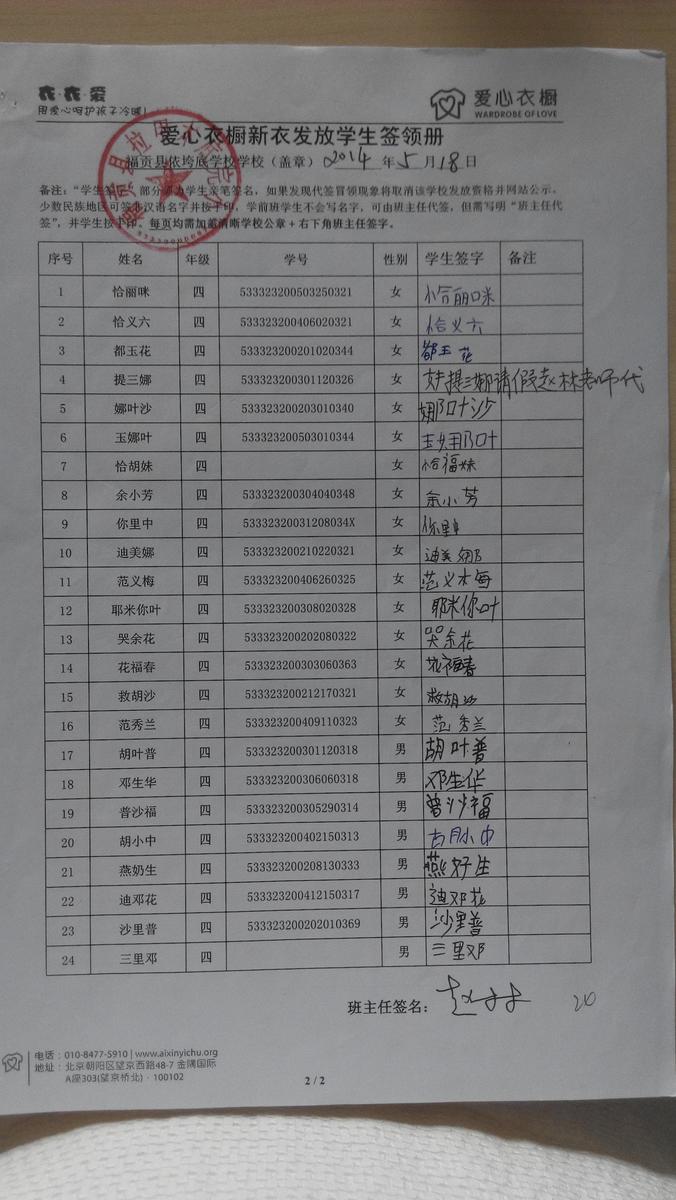 衣·衣·爱
用爱心呵护孩子冷暖!
爱心衣橱
WARDROBE OF LOVE
爱心衣橱新衣发放学生签领册
福贡县依垮底学校学校（盖章）2014年5月18日
备注：“学生签
部分
为学生亲笔签名，如果发现代签冒领现象将取消该学校发放资格并网站公示。
少数民族地区可签非汉语名字并按手印，学前班学生不会写名字，可由班主任代签，但需写明“班主任代
签”，并学生按手印。每页均需加盖清晰学校公章+右下角班主任签字。
序号 姓名 年级 学号 性别 学生签字 备注
1 恰丽咪 四 533323200503250321 女 恰丽咪
2 恰义六 四 533323200406020321 女 恰义六
3 都玉花 四 533323200201020344 女 都玉花
4 提三娜 四 533323200301120326 女 提三娜请假赵林老师代
5 娜叶沙 四 533323200203010340 女 娜叶沙
6 玉娜叶 四 533323200503010344 女 玉娜叶
7 恰胡妹 四 女 恰福妹
8 余小芳 四 533323200304040348 女 余小芳
9 你里中 四 53332320031208034X 女 你里中
10 迪美娜 四 533323200210220321 女 迪美娜
11 范义梅 四 533323200406260325 女 范义梅
12 耶米你叶 四 533323200308020328 女 耶米你叶
13 哭余花 四 533323200202080322 女 哭余花
14 花福春 四 533323200303060363 女 花福春
15 救胡沙 四 533323200212170321 女 救胡沙
16 范秀兰 四 533323200409110323 女 范秀兰
17 胡叶普 四 533323200301120318 男 胡叶普
18 邓生华 四 533323200306060318 男 邓生华
19 普沙福 四 533323200305290314 男 普沙福
20 胡小中 四 533323200402150313 男 胡小中
21 燕奶生 四 533323200208130333 男 燕好生
22 迪邓花 四 533323200412150317 男 迪邓花
23 沙里普 四 533323200202010369 男 沙里普
24 三里邓 四 男 三里邓
班主任签名：赵林 20
电话：010-8477-5910 | www.aixinyichu.org
地址：北京朝阳区望京西路48-7 金隅国际
A座303(望京桥北)·100102
2 / 2